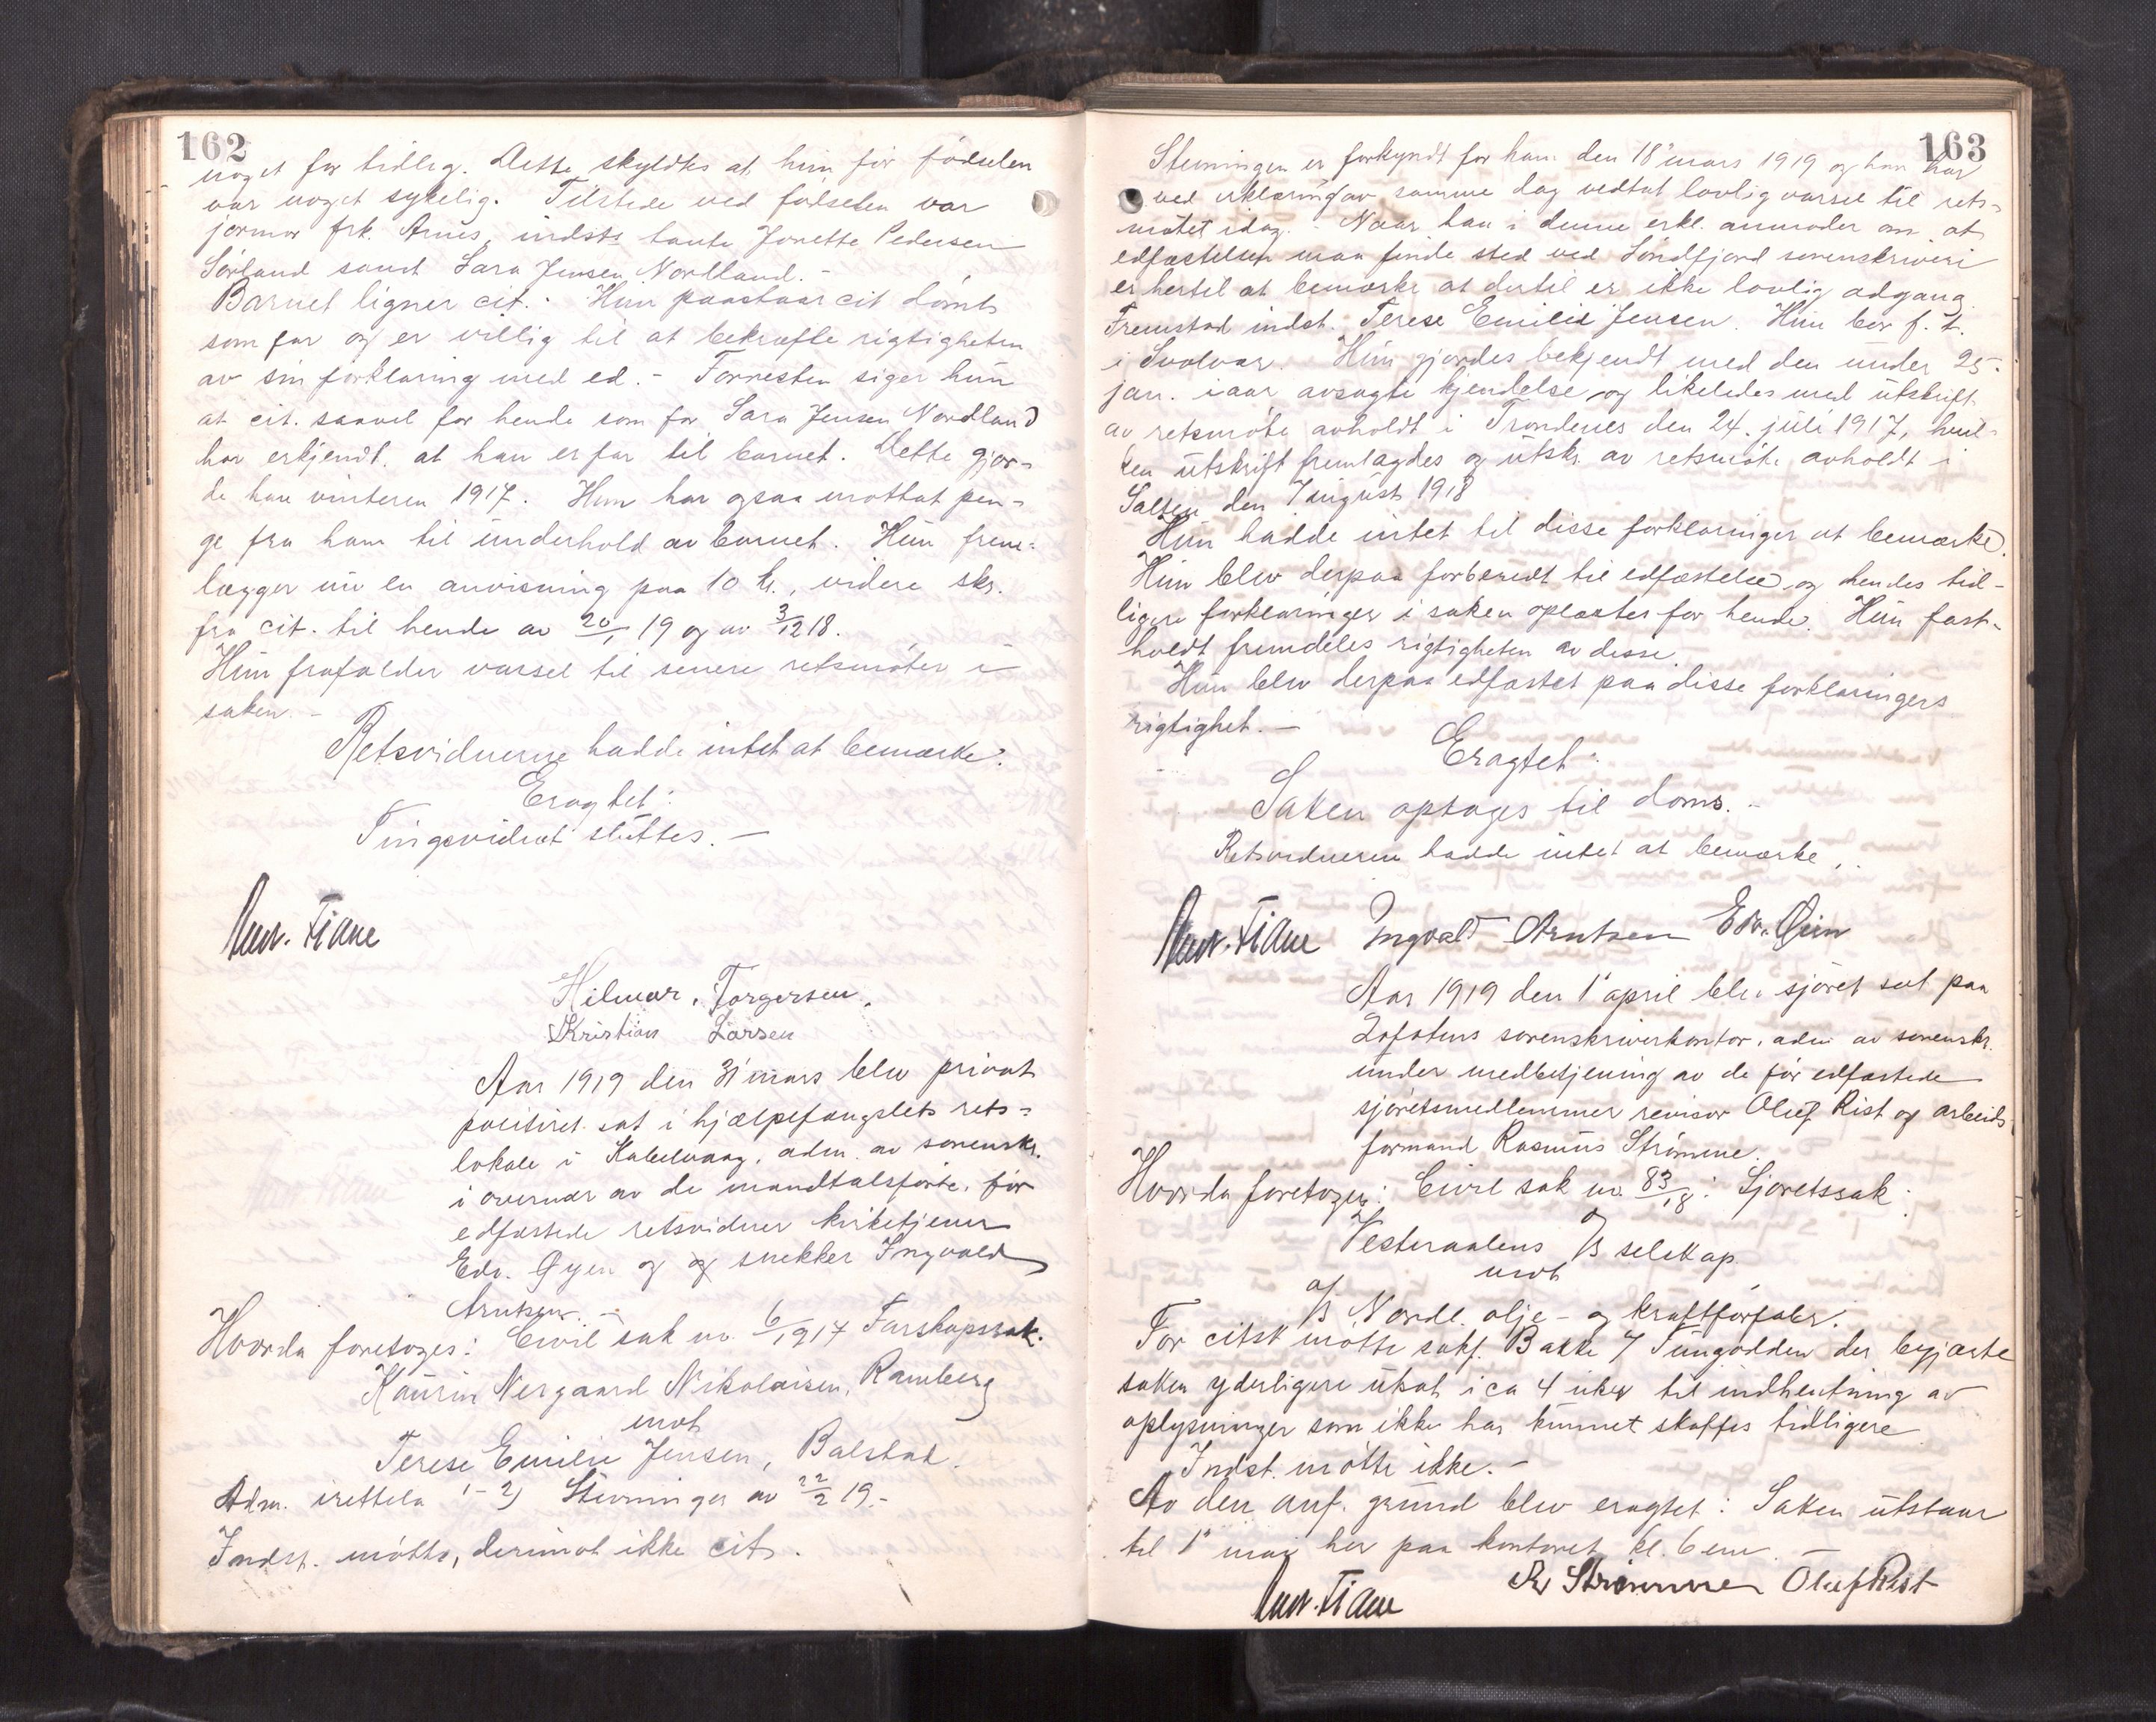 162
noget for tidlig. Dette skyldtes at hun før fødselen
var noget sykelig. Tilstede ved fødselen var
jormor frk. Arnes, indsts tante Jonette Pedersen
Sørland samt Sara Jensen Nordland. -
Barnet ligner cit. Hun paastaar cit dømt
som far og er villig til at bekræfte rigtigheten
av sin forklaring med ed. - Forresten siger hun
at cit. saavel for hende som for Sara Jensen Nordland
har erkjendt at han er far til barnet. Dette gjor-
de han vinteren 1917. Hun har ogsaa mottat pen-
ge fra ham til underhold av barnet. Hun frem-
lægger nu en anvisning paa 10 kr., videre skr.
fra cit. til hende av 20/1 19 og av 3/12 18.
Hun frafalder varsel til senere retsmøter i
saken. -
Retsvidnerne hadde intet at bemærke.
Eragtet:
Tingsvidnet sluttes. -
Fiane
Hilmar Torgersen.
Kristian Larsen
Aar 1919 den 31' mars blev privat
politiret sat i hjælpefængslets rets-
lokale i Kabelvaag, adm. av sorenskr.
i overvær av de mandtalsførte, før
edfæstede retsvidner kirketjener
Edv. Øyen og og snekker Ingvald
Arntzen. -
Hvorda foretoges: Civil sak nr. 6/1917 Farskapssak.
Kaurin Nergaard Nikolaisen, Ramberg
mot
Terese Emilie Jensen, Balstad.
Adm. irettela 1-2) Stevninger av 22/2 19.-
Indst. møtte, derimot ikke cit.
163
Stevningen er forkyndt for ham den 18' mars 1919 og han har
ved erklæring av samme dag vedtat lovlig varsel til rets-
møtet idag. - Naar han i denne erkl. anmoder om at
edfæstelsen maa finde sted ved Søndfjord sorenskriveri
er hertil at bemærke at dertil er ikke lovlig adgang.
Fremstod indst. Terese Emilie Jensen. Hun bor f. t.
i Svolvær. Hun gjordes bekjendt med den under 25.
jan. iaar avsagte kjendelse og likeledes med utskrift
av retsmøte avholdt i Trondenes den 24. juli 1917, hvil-
ken utskrift fremlagdes og utskr. av retsmøte avholdt i
Salten den 7 august 1918
Hun hadde intet til disse forklaringer at bemærke.
Hun blev derpaa forberedt til edfæstelse og hendes tid-
ligere forklaringer i saken oplæstes for hende. Hun fast-
holdt fremdeles rigtigheten av disse.
Hun blev derpaa edfæstet paa disse forklaringers
rigtighet. -
Eragtet:
Saken optages til doms. -
Retsvidnerne hadde intet at bemærke.
Fiane Ingvald Arntzen Edv. Øien
Aar 1919 den 1' april blev sjøret sat paa
Lofotens sorenskriverkontor, adm av sorenskr.
under medbetjening av de før edfæstede
sjøretsmedlemmer revisor Oluf Rist og arbeids-
formand Rasmus Strømme.
Hvorda foretoges: Civil sak nr. 83/18: Sjøretssak:
Vesteraalens D/S selskap
mot
A/S Nordl. olje- og kraftforfabr.
For citst møtte sakf. Bakke v/ Tungodden der begjærte
saken yderligere utsat i ca 4 uker til indhentning av
oplysninger som ikke har kunnet skaffes tidligere
Indst. møtte ikke. -
Av den anf. grund blev eragtet: Saken utstaar
til 1' mai her paa kontoret kl. 6 em. -
Fiane R Strømme Oluf Rist